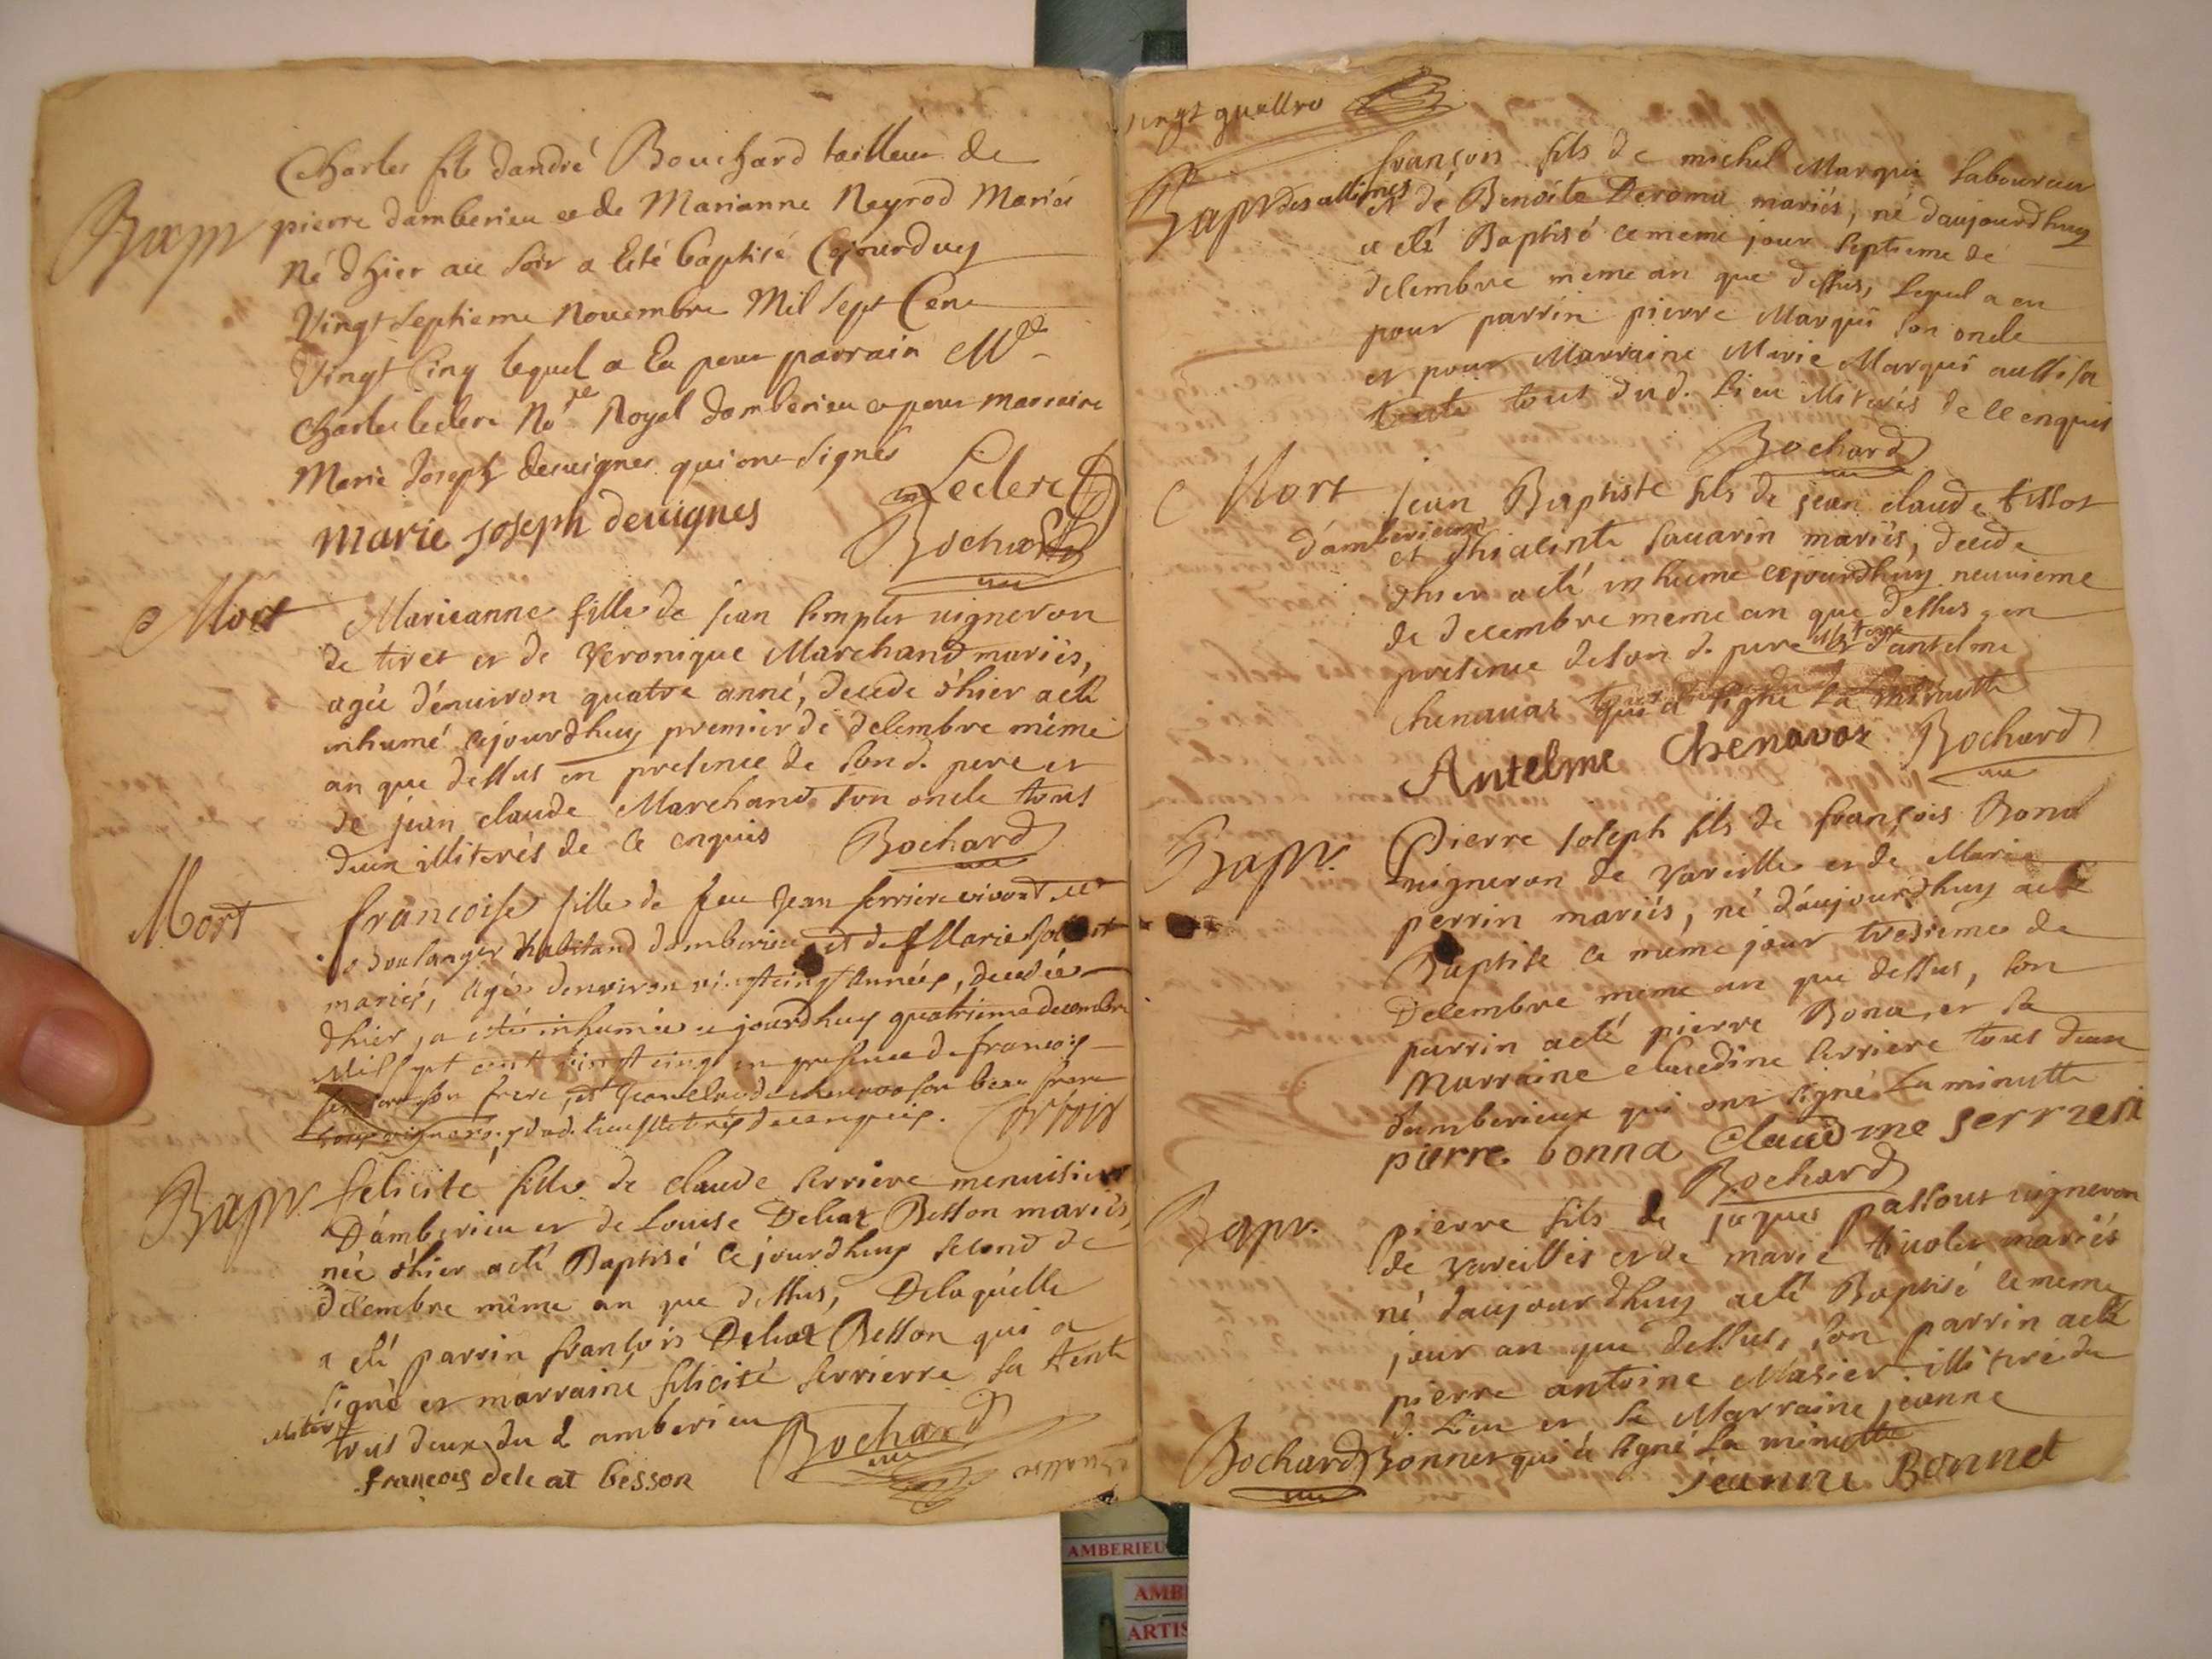 Bapt
Charles fils dandré Bouchard tailleur de
pierre damberieu et de Marianne Neyrod Mariés
Né dhier au soir a Eté baptisé Cejourduy
Vingt Septieme Novembre Mil Sept Cent
Vingt Cinq lequel a Eu pour parrain Mre
Charles leclerc No.re Royal damberieu et pour marraine
Marie Joseph deuignes qui ont signés
Leclerc
marie joseph deuignes
Bochard
Mort
Marieanne fille de jean simples vigneron
de tiret et de Veronique Marchand mariés,
agée d'enuiron quatre anné, decede d'hier a eté
inhumé cejourdhuy premier de decembre même
an que dessus en presence de son d. pere et
de jean claude Marchand son oncle tous
deux illiterés de ce enquis
Bochard
Mort
francoise fille de feu Jean serriere vivant
boulanger habitand damberieu et de Marie
mariés, agée denviron vingt cinq années, decedée
dhier, a etée inhumée cejourdhuy quatrieme decembre
Mil sept cent vingt cinq en presence de francois
son frere, et Jean claude chenavas son beau frere
tous vignerons dud. lieu illiterés de ce enquis.
Bapt.
felicité fille de claude serriere menuisier
D'amberieu et de Louise Deleat Besson mariés,
née d'hier a eté Baptisé Ce jourdhuy second de
decembre même an que dessus, De laquelle
a eté parrin françois Deleat Besson qui a
signé et marraine felicité serrierre sa tente
illiteré
tous deux du d amberieu
Bochard
francois deleat besson
vingt quattre
Bapt des allimes
françois fils de michel Marqui laboureur
et de Benoite Deroma mariés, né daujourdhuy
a eté Baptisé ce meme jour septieme de
decembre meme an que dessus, lequel a eu
pour parrin pierre Marqui son oncle
et pour Marraine Marie Marqui aussi sa
tente tous dud. Lieu illiterés de ce enquis
Bochard
Mort
d'amberieux
jean Baptiste fils de jean claude tissot
et d'hiacinte sauarin mariés, decede
d'hier a eté inhumé cejourdhuy neuvieme
de decembre meme an que dessus, en
presence de son d. pere et d'antelme
chenavaz qui a signé la minutte
Antelme Chenavaz
Bochard
Bapt.
Pierre joseph fils de françois Bona
vigneron de vareille et de Marie
perrin mariés, né d'aujourdhuy a eté
Baptise ce même jour tresieme de
Decembre même an que dessus, son
parrin a eté pierre Bona, et sa
Marraine claudine serriere tous deux
damberieux qui ont signé la minutte
pierre bonna claudine serriere
Bochard
Bapt.
pierre fils de jaques passout vigneron
de vareilles et de marie tivolet mariés
né daujourdhuy a eté Baptisé ce meme
jour an que dessus, son parrin a eté
pierre antoine Masier illiteré du
d. Lieu et sa Marraine jeanne
Bonnet qui a signé la minutte
Bochard
jeanne Bonnet
AMBERIEU
AMB
ARTIS